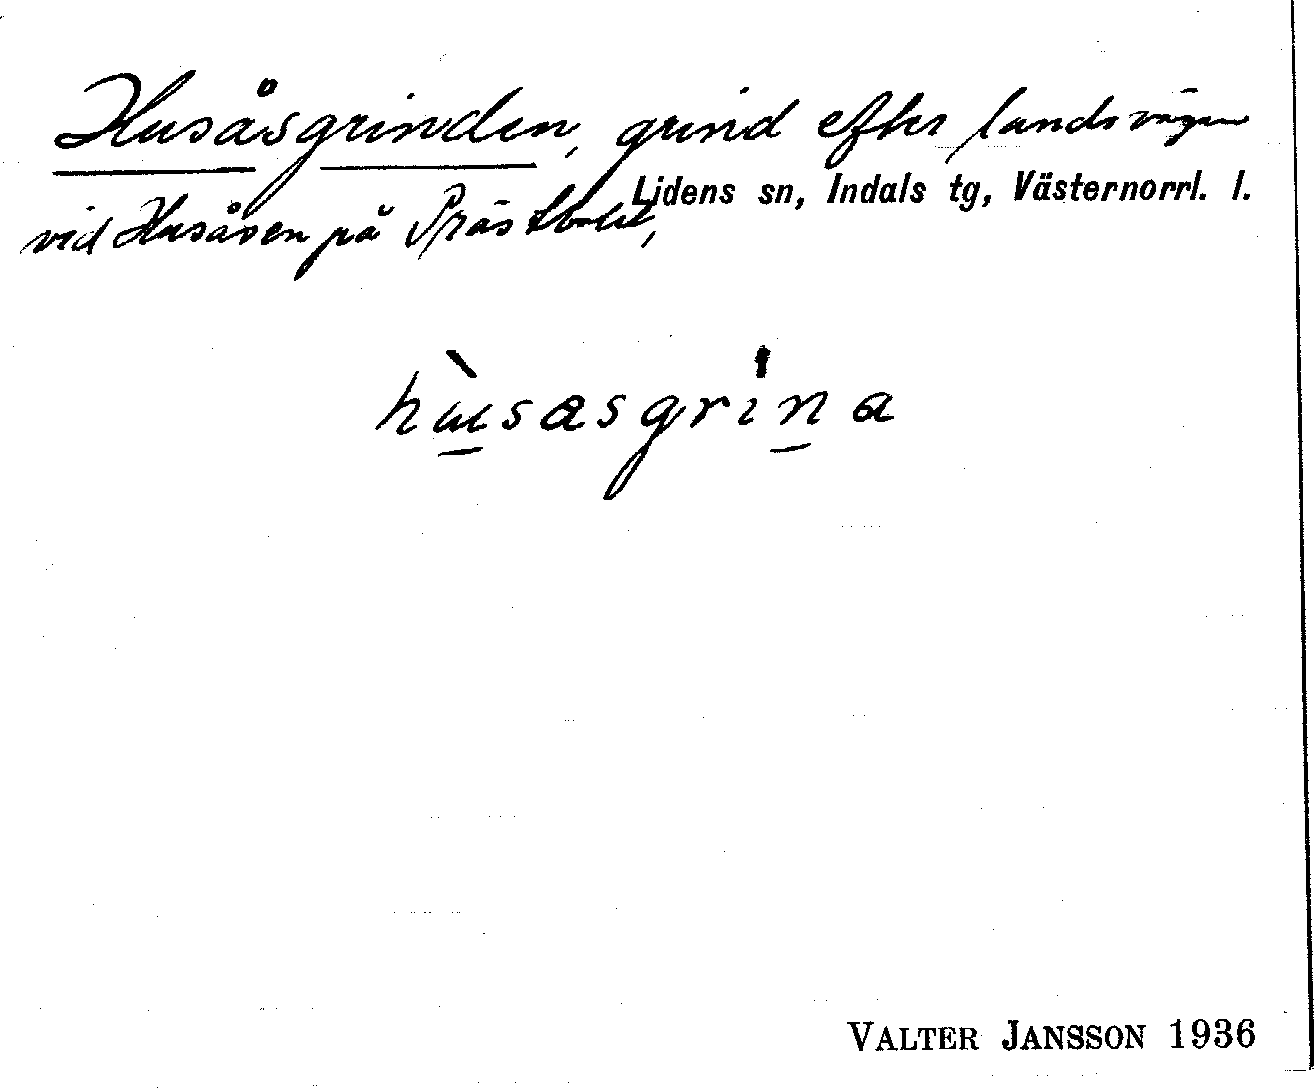 Husåsgrinden, grind efter landsvägen
Lidens sn, Indals tg, Västernorrl. l.
vid Husåsen på Prästbolet,
hùsasgrina
VALTER JANSSON 1936